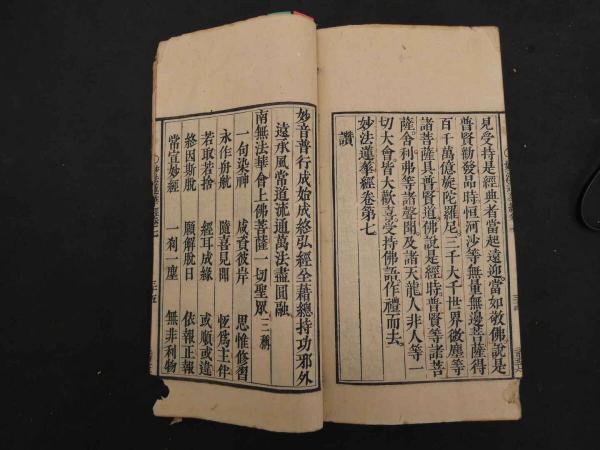 見受持是經典者當起遠迎當如敬佛說是
普賢勸發品時恒河沙等無量無邊菩薩得
百千萬億旋陀羅尼三千大千世界微塵等
諸菩薩具普賢道佛說是經時普賢等諸菩
薩舍利弗等諸聲聞及諸天龍人非人等一
切大會皆大歡喜受持佛語作禮而去
妙法蓮華經卷第七
讚
妙音普行成始成終弘經全藉總持功邪外
遠承風常道流通萬法盡圓融
南無法華會上佛菩薩一切聖眾 三稱
一句染神 咸資彼岸 思惟修習
永作舟航 隨喜見聞 恆為主伴
若取若捨 經耳成緣 或順或違
終因斯脫 願解脫日 依報正報
常宣妙經 一刹一塵 無非利物